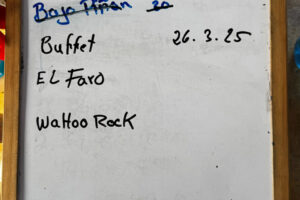 Baja Piñan 20
Buffet 26.3.25
EL Faro
Wahoo Rock